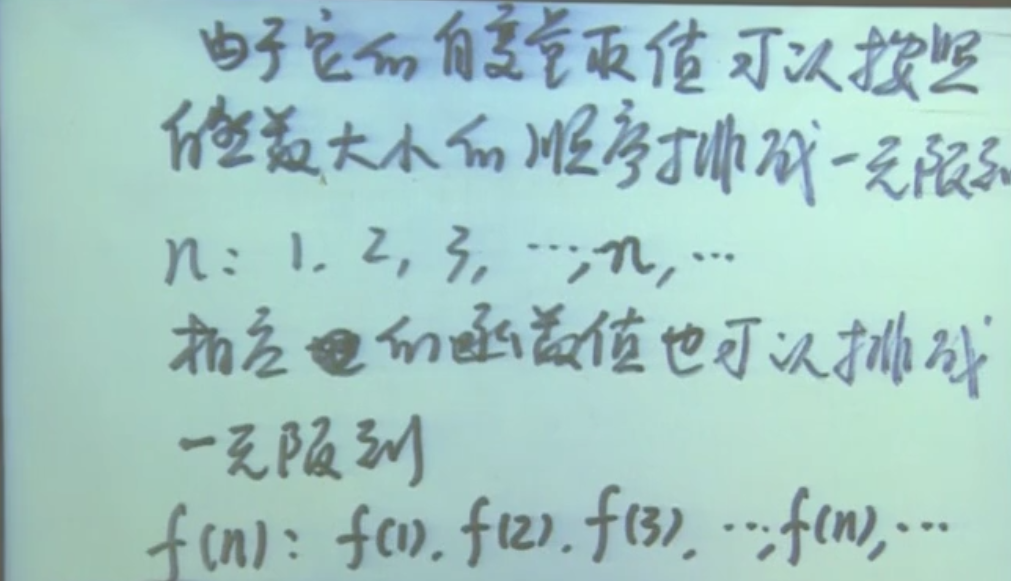 由于它的自变量取值可以按照
自然数大小的顺序排成一无限列
n: 1, 2, 3, …, n, …
相应的函数值也可以排成
一无限列
f(n): f(1), f(2), f(3), …, f(n), …